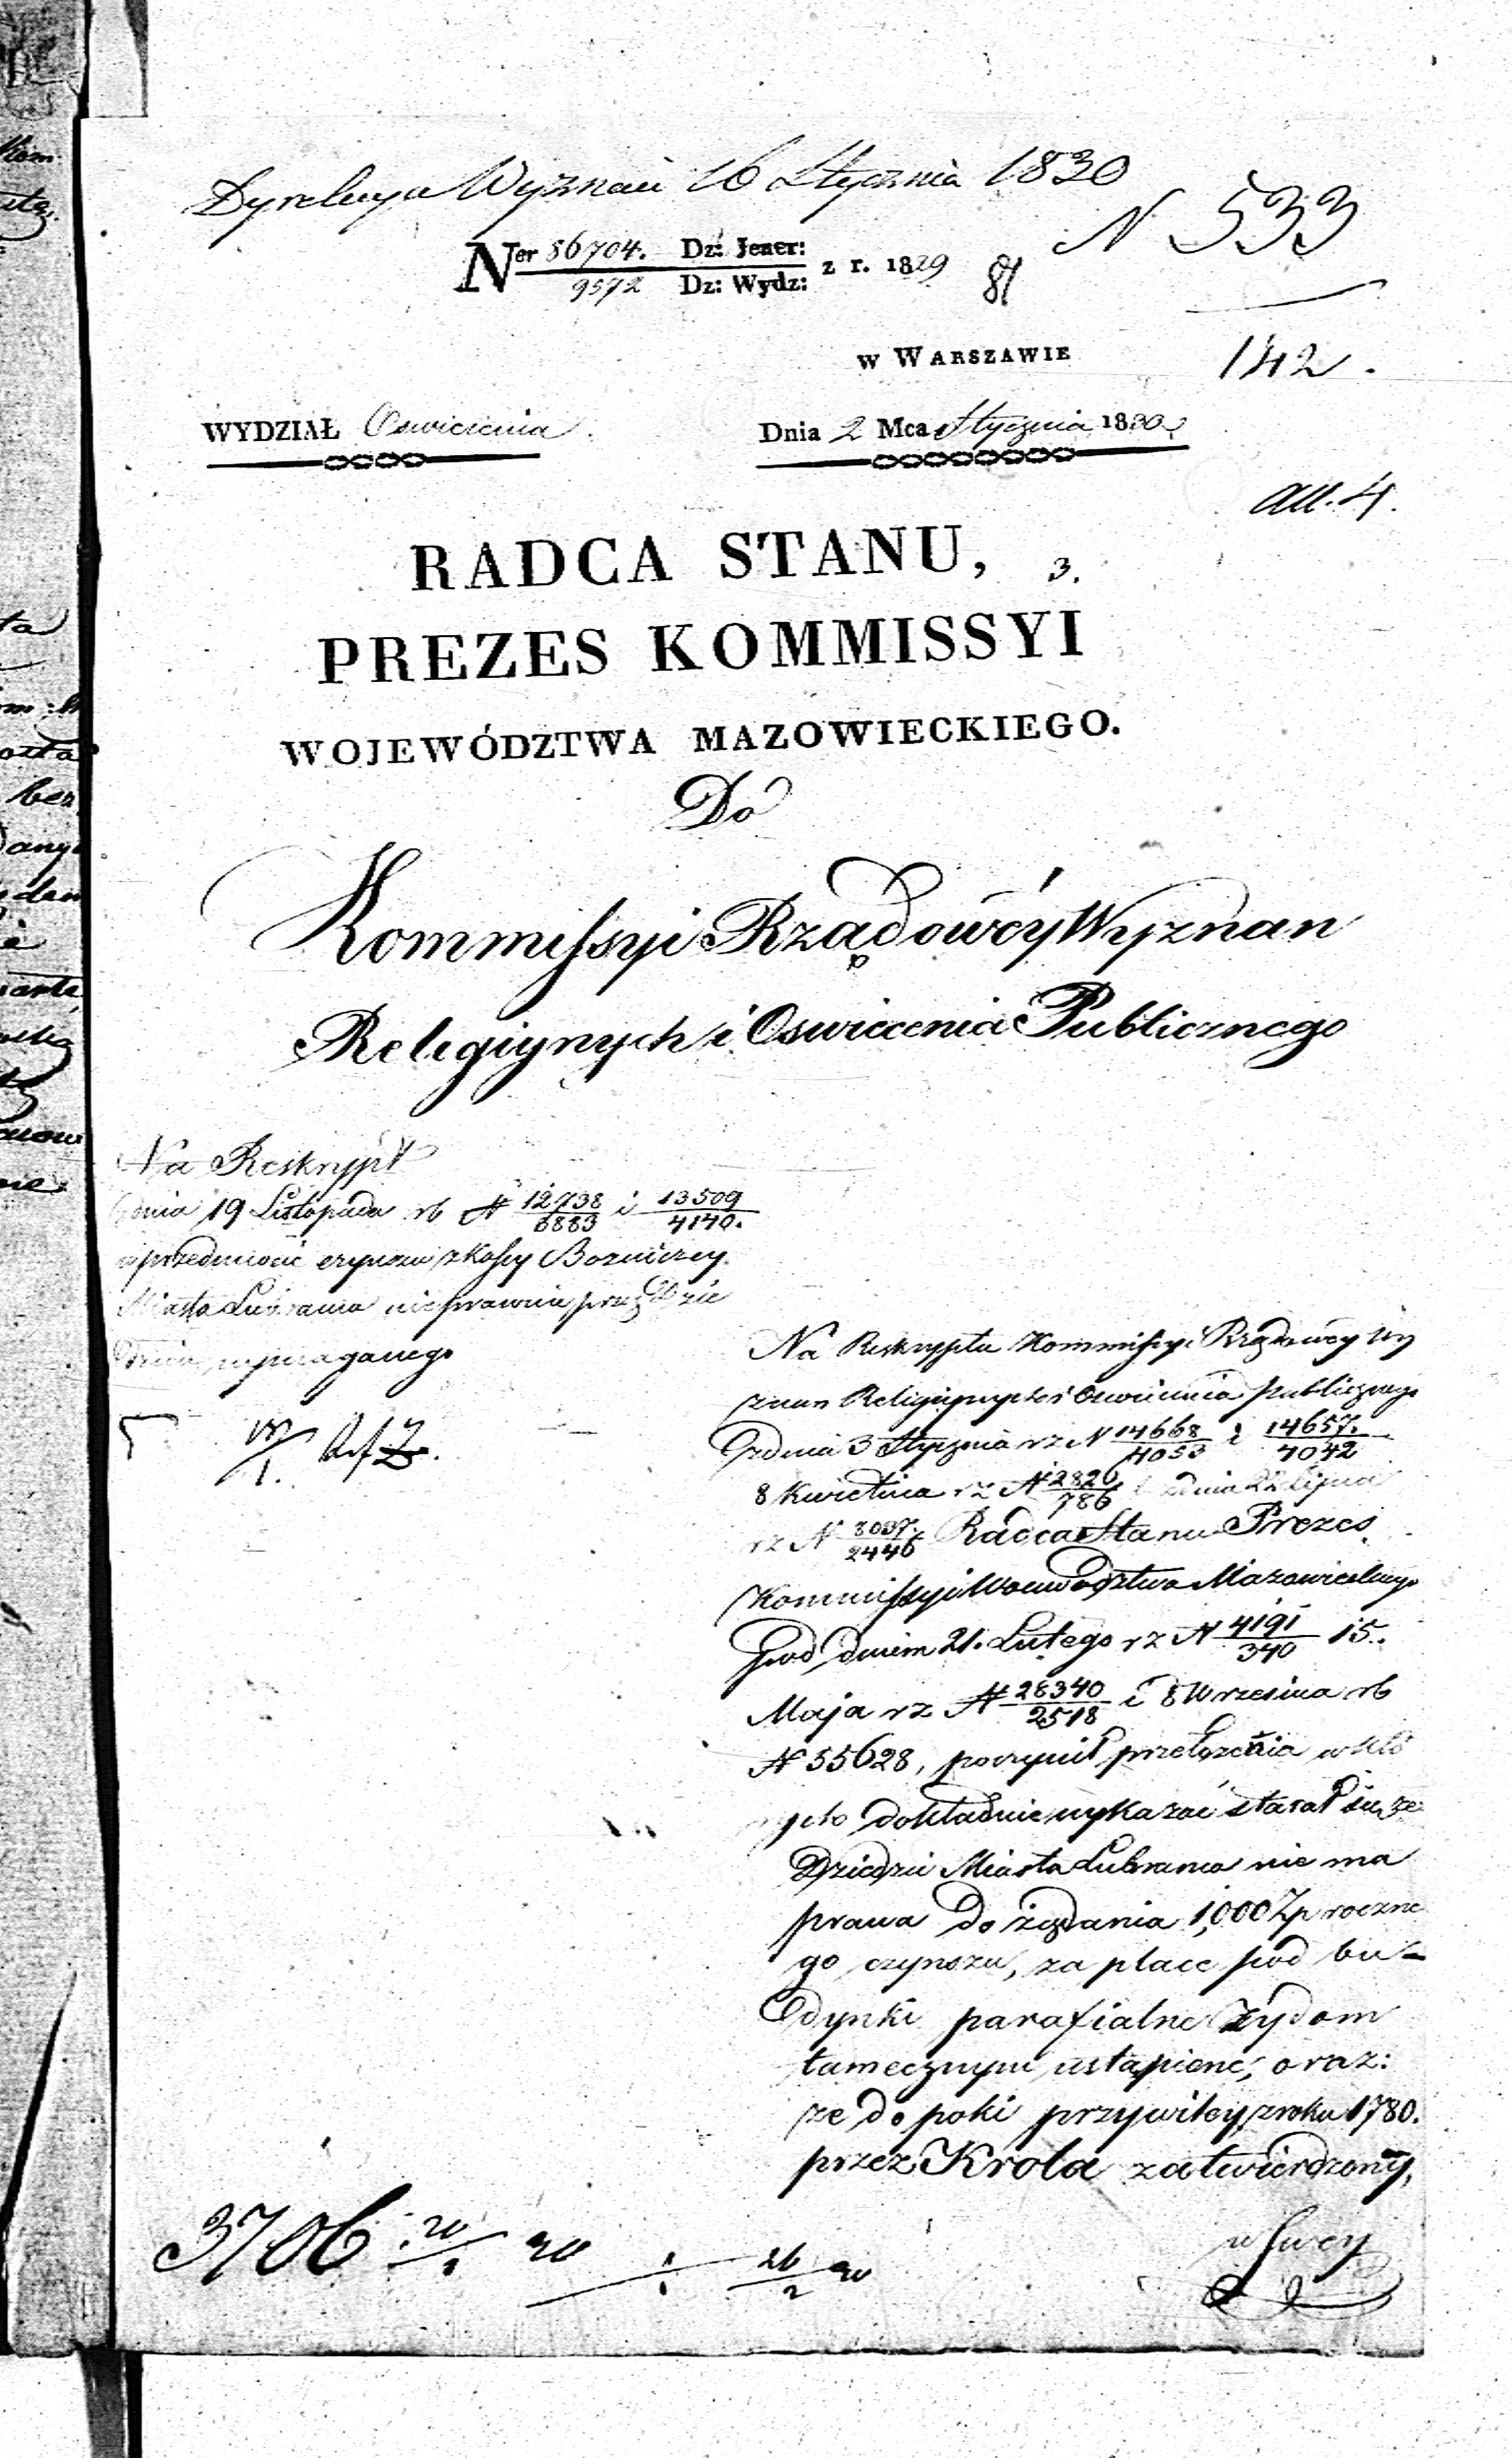 Dyrekcya Wyznań 16 Stycznia 1830
N 533
Ner 86704. Dz: Jener:
9572 Dz: Wydz: z r. 1829
81
w Warszawie
142.
WYDZIAŁ Oswiecenia.
Dnia 2 Mca Stycznia 1830.
all. 4.
RADCA STANU,
3.
PREZES KOMMISSYI
WOJEWÓDZTWA MAZOWIECKIEGO.
Do
Kommissyi Rządowéy Wyznan
Religiynych i Oswiecenia Publicznego
Na Reskrypt
z dnia 19 Listopada rb N 12738/6883 i 13509/4140.
w przedmiocie czynszu z Kassy Bozniczey
Miasta Lubrania nieprawnie przez Dzie
dzica wymaganego
Na Reskrypta Kommissyi Rządowey Wy
znan Religiynych i Oswiecenia Publicznego
z dnia 3 Stycznia rz N 14668/4053 i 14657./4042
8 Kwietnia rz N 2820/786 i z dnia 22 Lipca
rz N 8037./2446 Radca Stanu Prezes
Kommissyi Woiewodztwa Mazowieckiego
pod dniem 21. Lutego rz N 4191/340 15.
Maja rz N 28340/2518 i 8 Wrzesnia rb
N 55628, poczynił przełożenia w któ
rych dokładnie wykazać starał się, że
Dziedzic Miasta Lubrania nie ma
prawa do żądania 1,000 Zp roczne
go czynszu, za place pod bu-
dynki parafialne Zydom
tamecznym ustąpione, oraz:
ze dopoki przywiley z roku 1780.
przez Krola zatwierdzony,
w swey
3706 20/1 30
26/2 30